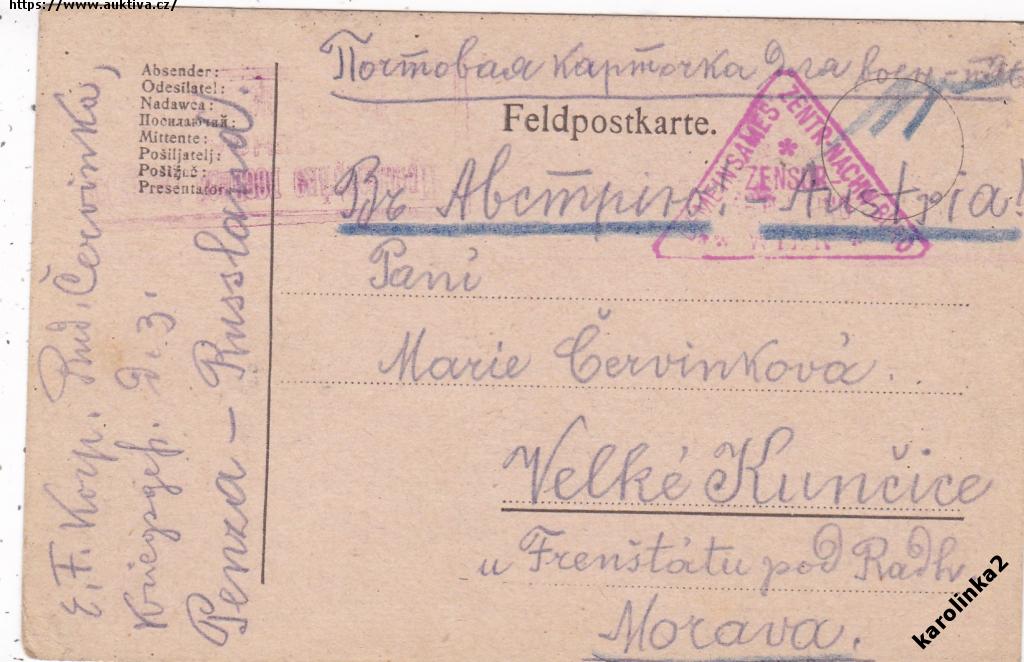 https://www.auktiva.cz/
Почтовая карточка для воен-
Absender:
Odesílatel:
Nadawca:
Посилаючий:
Mittente:
Pošiljatelj:
Presentator
Feldpostkarte.
GEMEINSAMES ZENTR.NACHW.
*
ZENSUR
WIEN
Въ Австрію. - Austria!
Paní
Marie Červinková.
Velké Kunčice
u Frenštátu pod Radh
Morava.
E. F. Korp. Rud. Červinka,
Kriegsgef. № 3.
Penza - Russland.
karolinka2